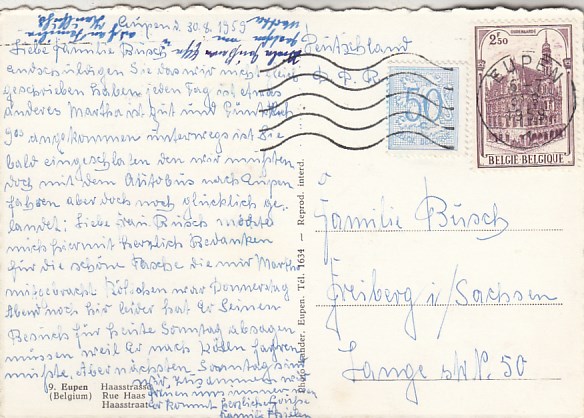 Eupen d. 30.8.1959
Liebe Familie Busch
entschuldigen Sie das wir nicht
geschrieben haben jeden Tag ist etwas
anderes Martha ist gut und Pünktlich
9⁰⁰ angekommen unterwegs ist Sie
bald eingeschlafen den wir mußten
doch mit dem Autobus nach Eupen
fahren aber doch noch glücklich ge-
landet; Liebe Frau Busch möchte
mich hiermit herzlich Bedanken
für die schöne Tasche die mir Martha
mitgebracht war Donnerstag
Abend noch hir leider hat Er Seinen
Besuch für heute Sonntag absagen
müssen weil Er nach Köln fahren
mußte. Aber nächsten Sonntag sind
wir zusammen wir
freuen uns wenn
er kommt Herzliche Grüße
Familie
9. Eupen Haasstrasse
(Belgium) Rue Haas
Haasstraat
Photo Kander, Eupen. Tél. 1634 — Reprod. interd.
Deutschland
D.D.R.
50
AUDENAARDE
2F50
BELGIË-BELGIQUE
EUPEN
Familie Busch
Freiberg i/Sachsen
Lange str. N:. 50